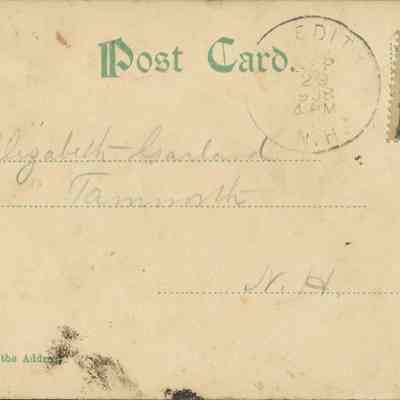 Post Card.
EDIT
SEP
28
N.H.
Elizabeth Garland
Tamworth
N. H.
the Address